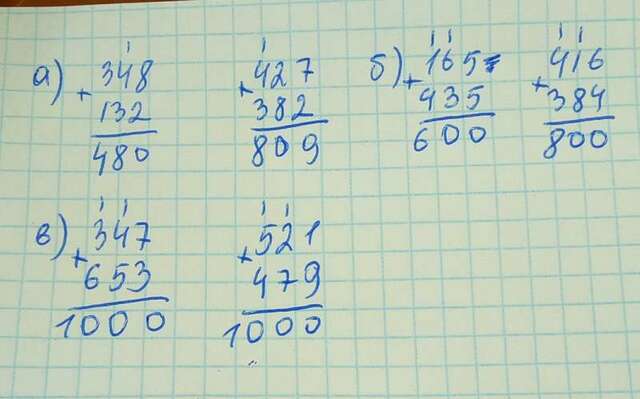 а) 348 + 132 = 480
427 + 382 = 809
б) 165 + 435 = 600
416 + 384 = 800
в) 347 + 653 = 1000
521 + 479 = 1000